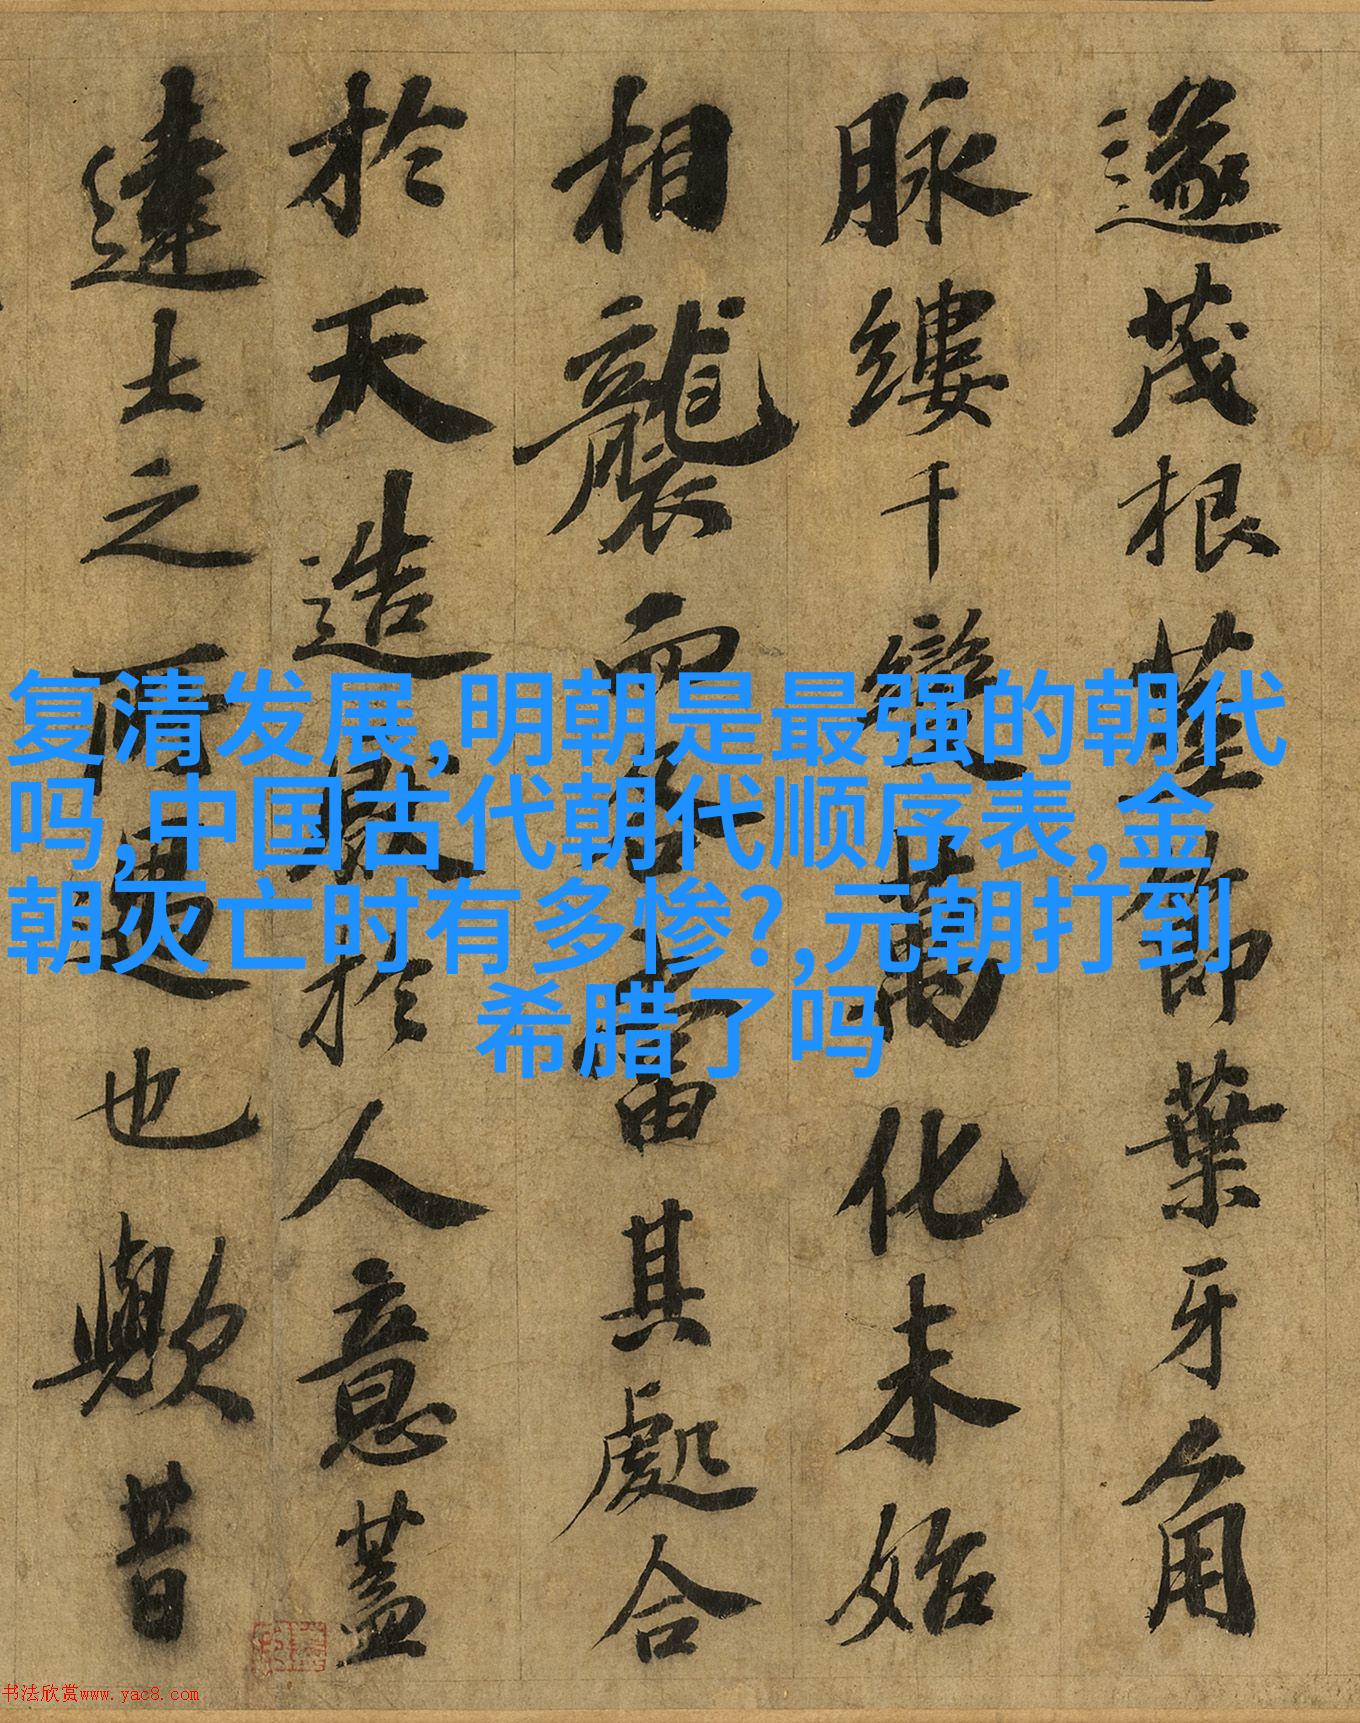 遂茂根莖節葉牙角
脉縷千變萬化未始
相襲而各當其處合
於天造厭於人意蓋
達士之所遇也歟昔
复清发展,明朝是最强的朝代
吗,中国古代朝代顺序表,金
朝灭亡时有多惨?,元朝打到
希腊了吗
书法欣赏www.yac8.com